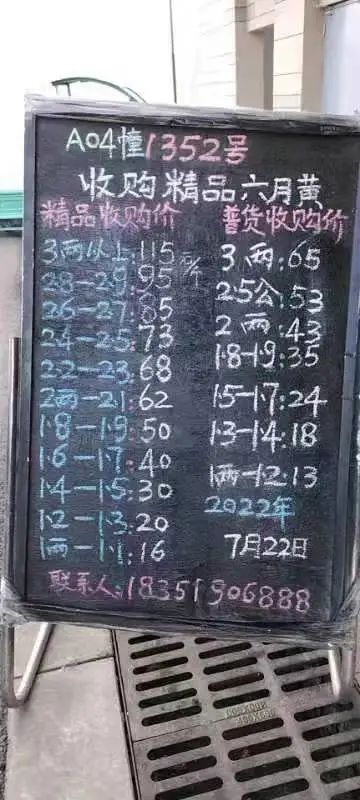 A04幢1352号
收购精品六月黄
精品收购价
3两以上:115元/斤
2.8-2.9:95
2.6-2.7:85
2.4-2.5:73
2.2-2.3:68
2两-2.1:62
1.8-1.9:50
1.6-1.7:40
1.4-1.5:30
1.2-1.3:20
1两-1.1:16
普货收购价
3两:65
2.5公:53
2两:43
1.8-1.9:35
1.5-1.7:24
1.3-1.4:18
1两-1.2:13
2022年
7月22日
联系人:18351906888